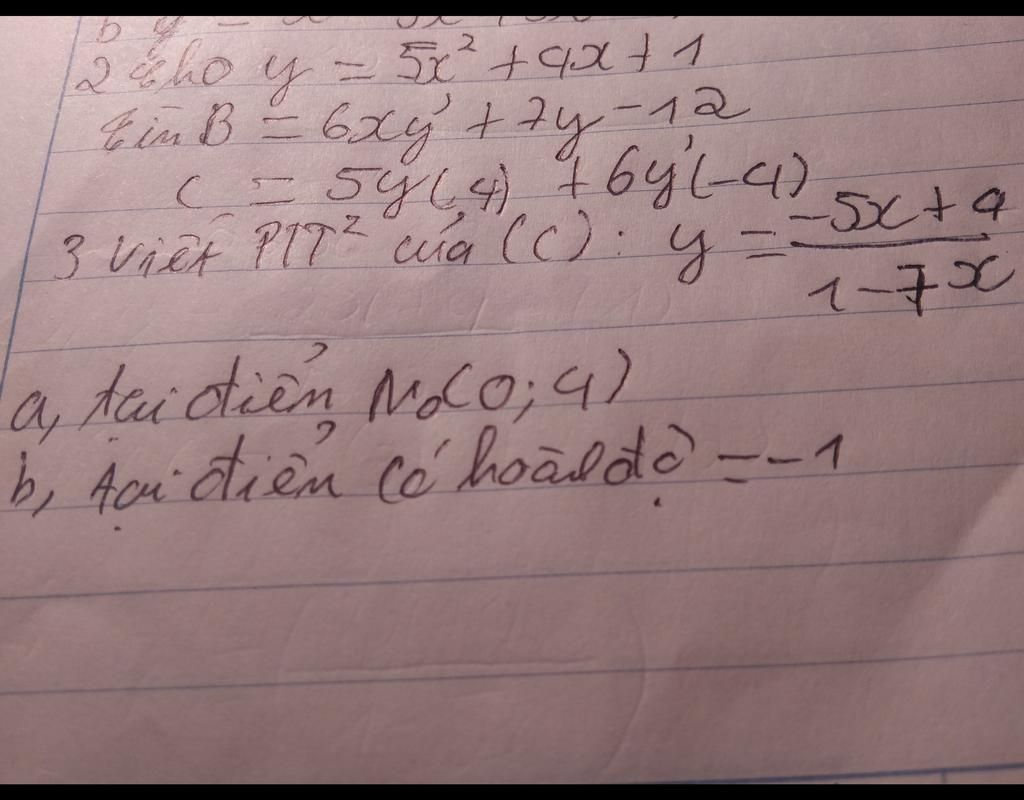 2 cho y = 5x² + 4x + 1
tìm B = 6xy' + 7y - 12
C = 5y(4) + 6y'(-4)
3 Viết PTT² của (C): y = \frac{-5x+4}{1-7x}
a, tại điểm M₀(0;4)
b, tại điểm có hoành độ = -1